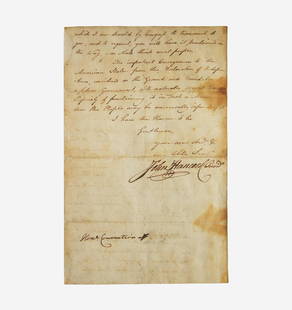 which I am directed by Congress to transmit to
you, and to request, you will have it proclaimed in
the way you shall think most proper.
The important Consequences to the
American States from this Declaration of Indepen
dence, considered as the Ground and
future Government, will naturally suggest the
Propriety of proclaiming it in such a
that the People may be universally informed of it.
I have the Honour to be
Gentlemen
your most obed.
Servt
John Hancock Presidt
Honble Convention of